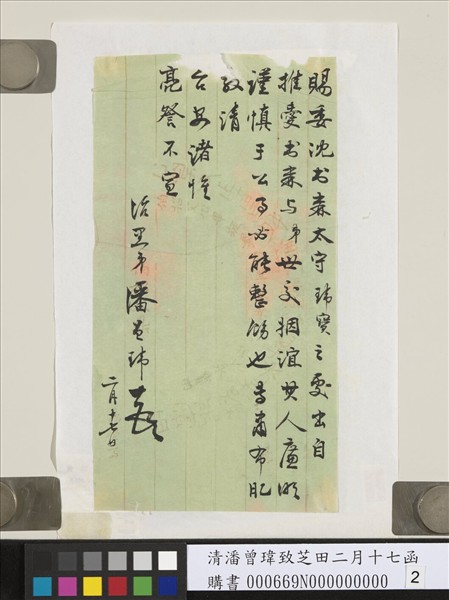 賜委沈書森太守瑋寶之處出自
推愛書森与弟世交姻誼其人廉明
謹慎于公事必能整飭也專肅布肊
敬請
台安諸惟
亮詧不宣
治愚弟潘曾瑋頓首
二月十七日
清潘曾瑋致芝田二月十七函
購書 000669N000000000
2